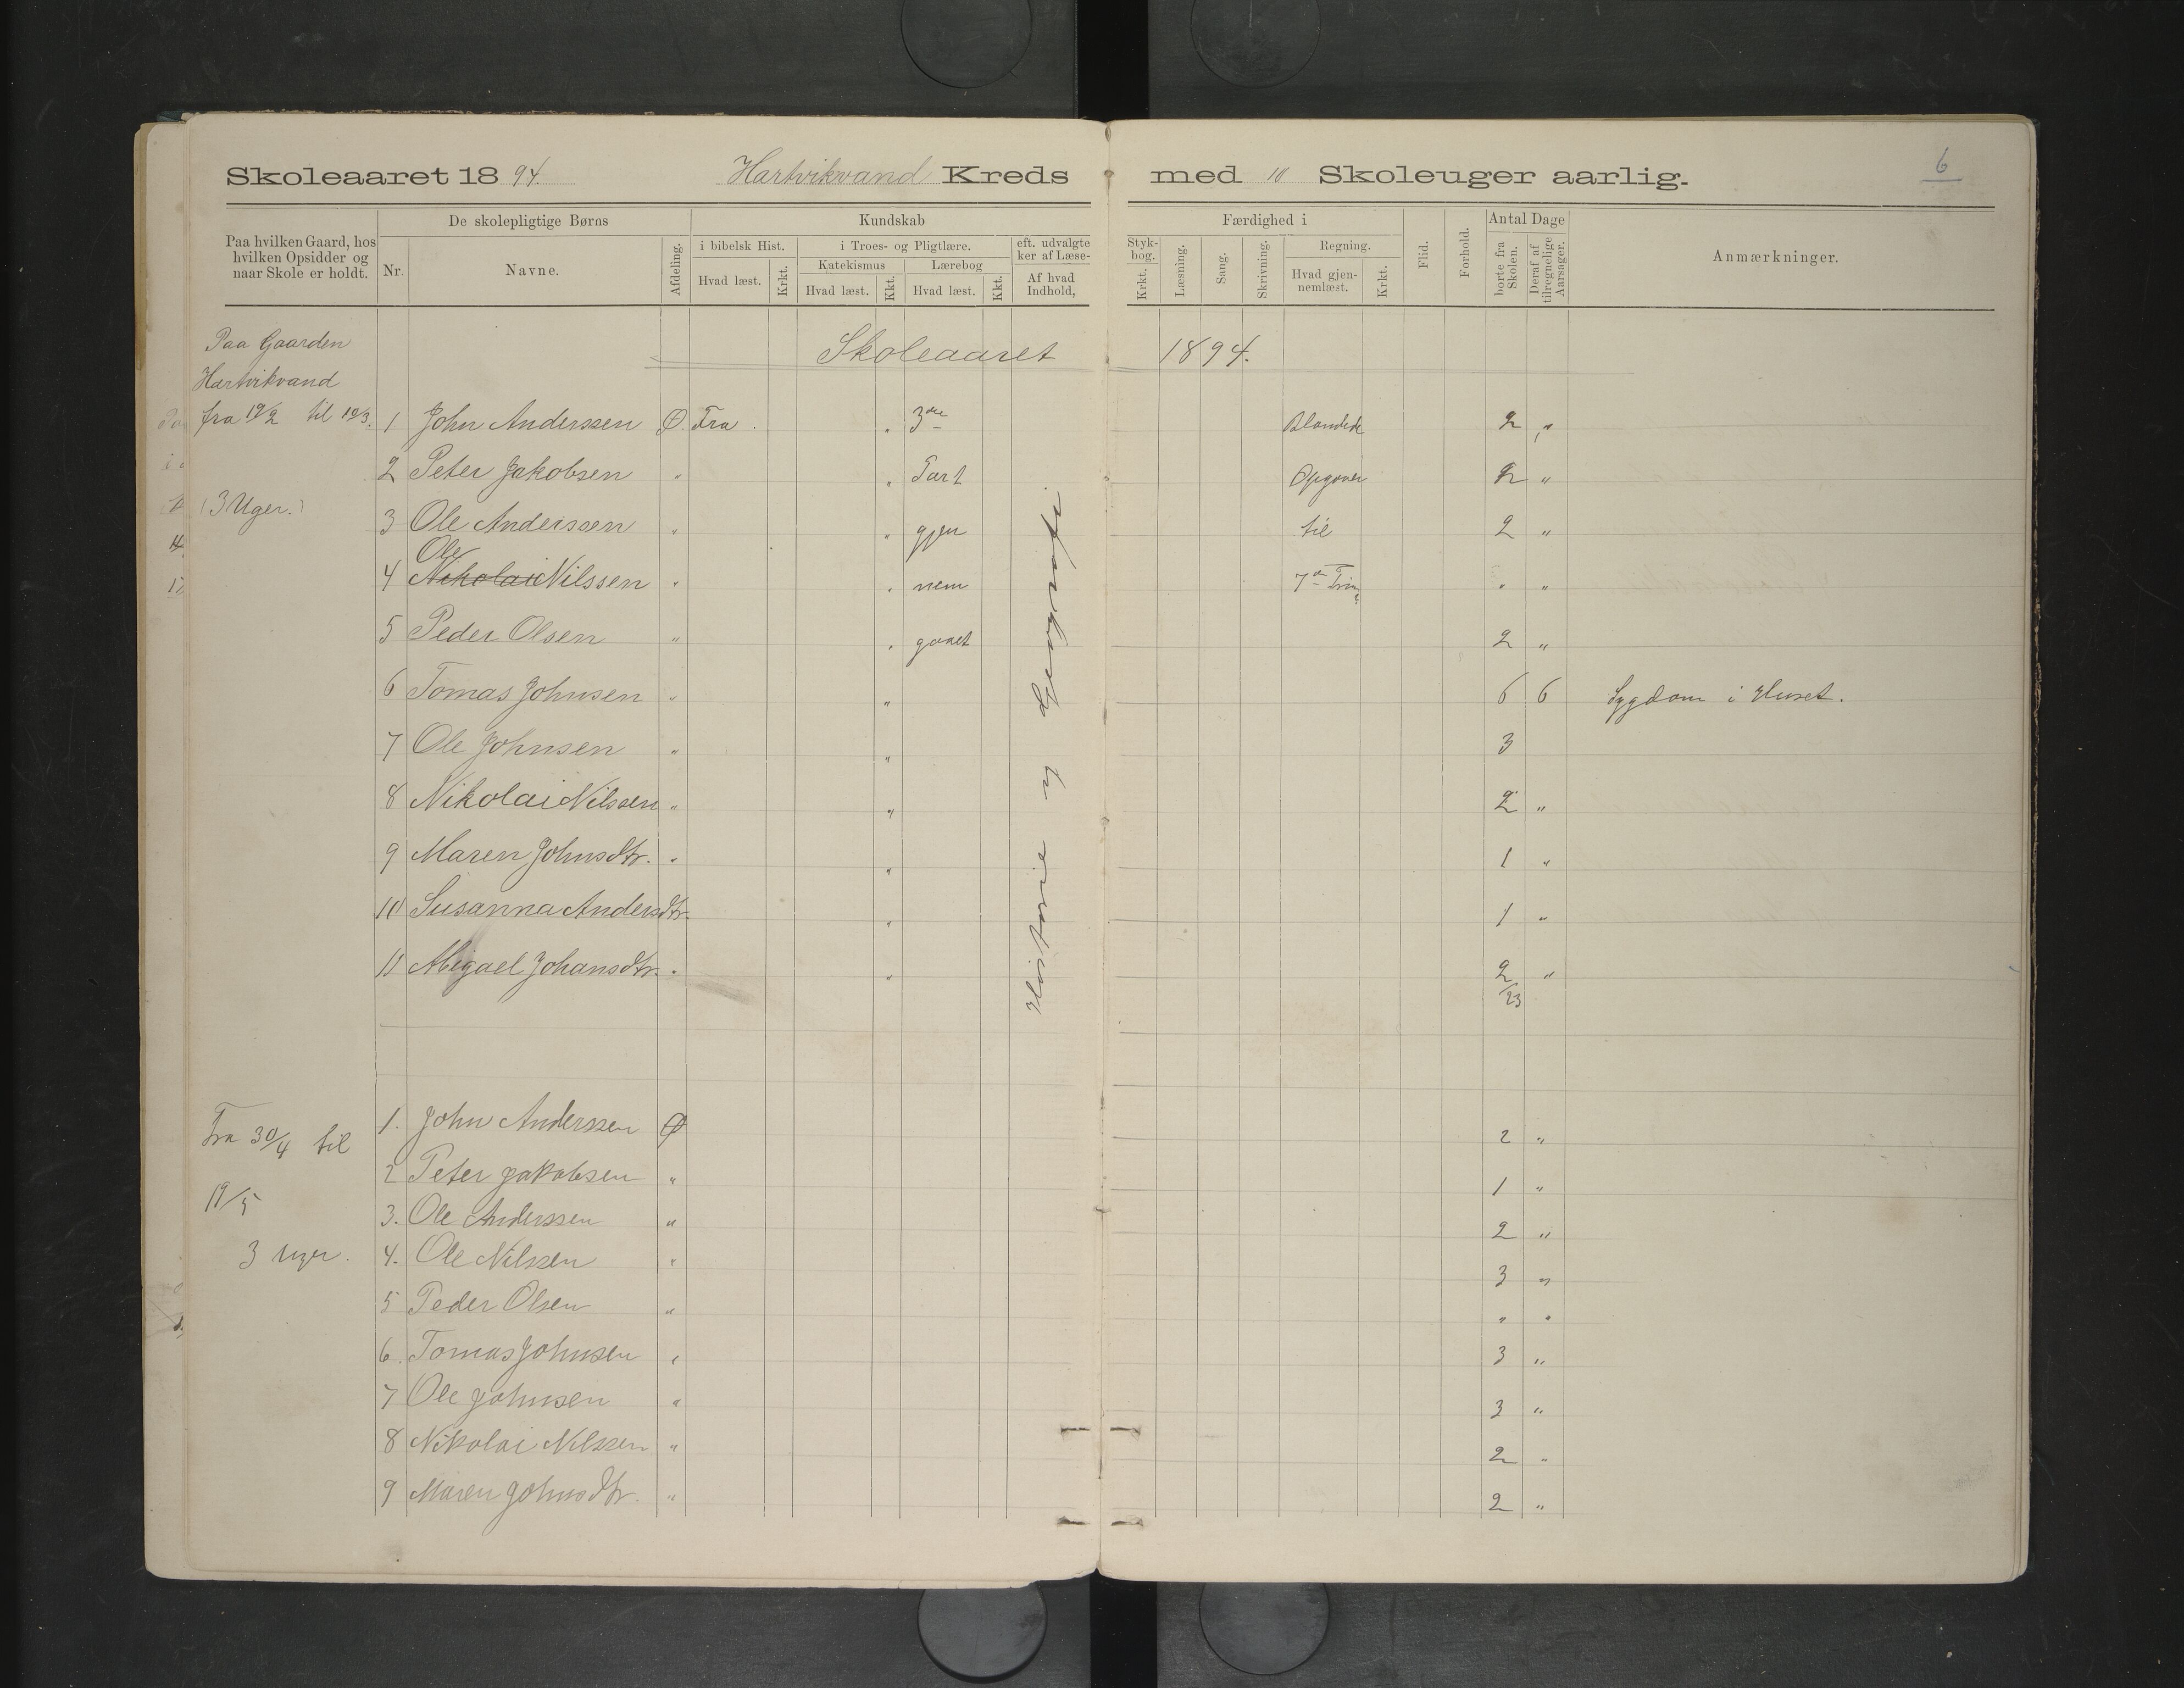 Skoleaaret 1894. Hartvikvand Kreds med 10 Skoleuger aarlig. 6
Paa hvilken Gaard, hos hvilken Opsidder og naar Skole er holdt.
De skolepligtige Børns
Nr. Navne. Afdeling.
Kundskab
i bibelsk Hist. Hvad læst. Krkt.
i Troes- og Pligtlære.
Katekismus Hvad læst. Kkt.
Lærebog Hvad læst. Kkt.
eft. udvalgte
ker af Læse-
Af hvad Indhold,
Færdighed i
Styk-
bog. Krkt.
Læsning. Sang. Skrivning.
Regning. Hvad gjen-
nemlæst. Krkt.
Flid. Forhold.
Antal Dage
borte fra Skolen.
Deraf af tilregnelige Aarsager.
Anmærkninger.
Skoleaaret 1894.
Paa Gaarden
Hartvikvand
fra 19/2 til 10/3.
(3 Uger.)
1 John Anderssen Ø. Fra " 3die Blandede 2 "
2 Peter Jakobsen " " Part Opgaver 2 "
3 Ole Anderssen " " gjen til 2 "
Ole
4 Nikolai Nilssen " " nem 7de Trin " "
5 Peder Olsen " " gaaet 2 "
6 Tomas Johnsen " " 6 6 Sygdom i Huset.
7 Ole Johnsen " " 3
8 Nikolai Nilssen " " 2 "
9 Maren Johnsdtr. " " 1 "
10 Susanna Andersdtr. " 1 "
11 Abigael Johansdtr. " " 2 "
/23
Historie og Geografi
Fra 30/4 til
19/5
3 Uger.
1. John Anderssen Ø 2 "
2 Peter Jakobsen " 1 "
3. Ole Anderssen " 2 "
4. Ole Nilssen " 3 "
5 Peder Olsen " " "
6. Tomas Johnsen " 3 "
7 Ole Johnsen " 3 "
8 Nikolai Nilssen " 2 "
9 Maren Johnsdtr. " 2 "